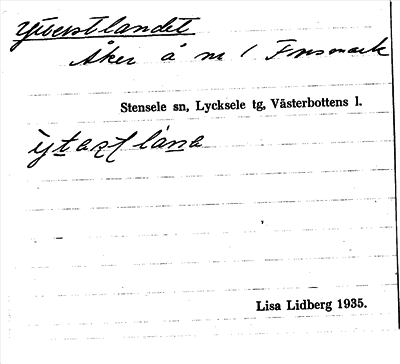 Ytterstlandet
Åker å nr 1 Fursmark
Stensele sn, Lycksele tg, Västerbottens l.
Lisa Lidberg 1935.